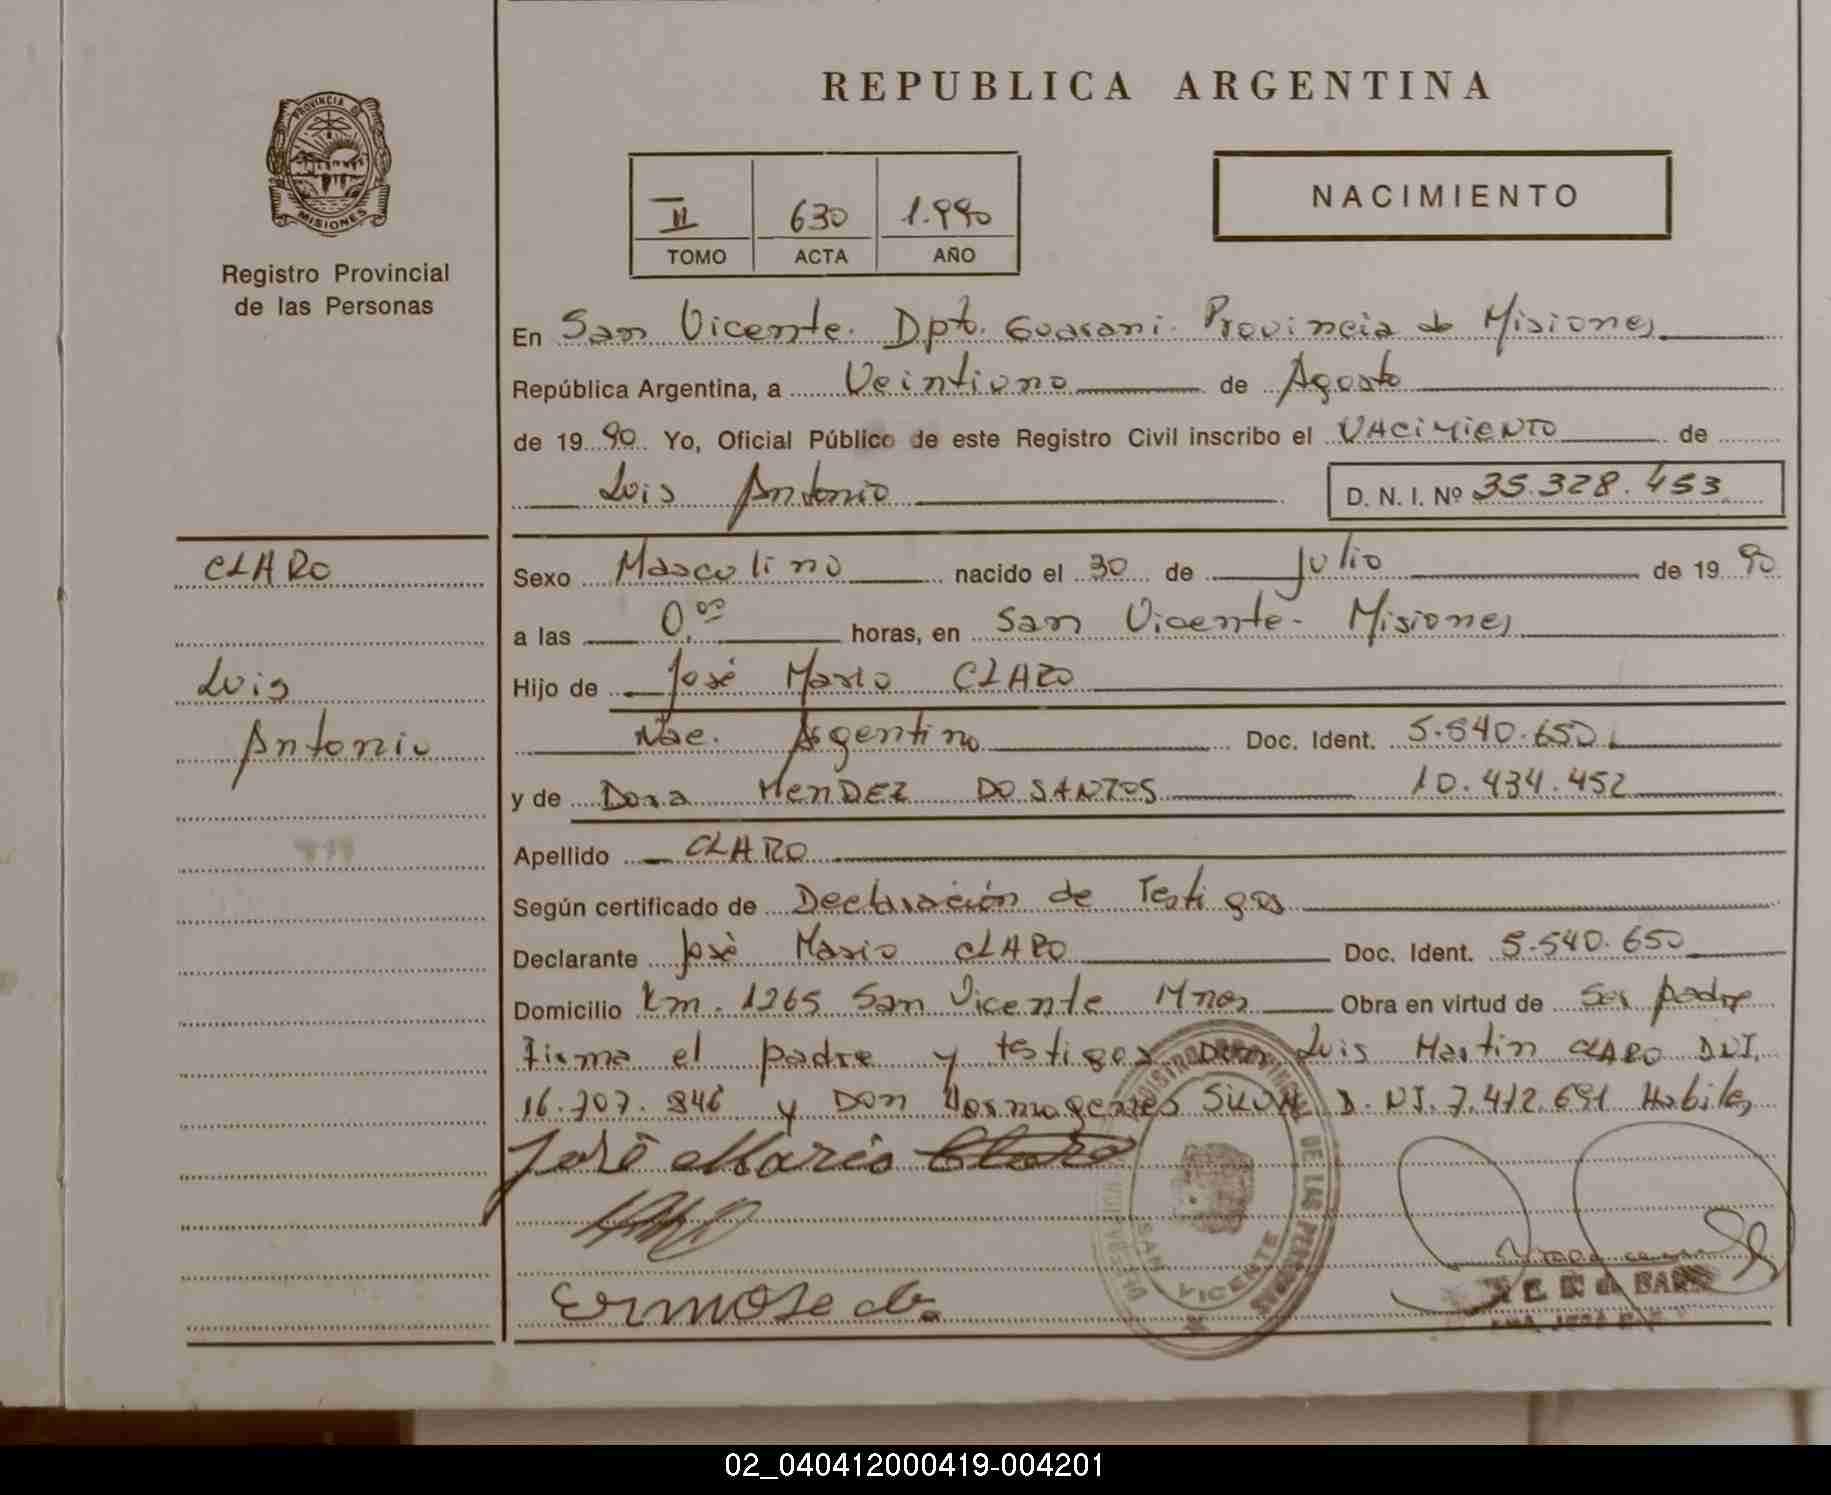 REPUBLICA ARGENTINA
PROVINCIA DE
MISIONES
Registro Provincial
de las Personas
II 630 1.990
TOMO ACTA AÑO
NACIMIENTO
En San Vicente. Dpto. Guarani. Provincia de Misiones
República Argentina, a Veintiuno de Agosto
de 1990 Yo, Oficial Público de este Registro Civil inscribo el NACIMIENTO de
Luis Antonio D. N. I. Nº 35.328.453
CLARO
Luis
Antonio
Sexo Masculino nacido el 30 de Julio de 1990
a las 0,00 horas, en San Vicente - Misiones
Hijo de José Mario CLARO
Nac. Argentino Doc. Ident. 5.540.650
y de Dora MENDEZ DO SANTOS 10.434.452
Apellido CLARO
Según certificado de Declaración de Testigos
Declarante José Mario CLARO Doc. Ident. 5.540.650
Domicilio Km. 1265 San Vicente Mnes Obra en virtud de Ser padre
Firma el padre y testigos Don Luis Martin CLARO DNI.
16.707.846 y DON Hormogenes SILVA D. NI. 7.412.691 Habiles
José Mario Claro
DE LAS PERSONAS
SAN VICENTE
02_040412000419-004201